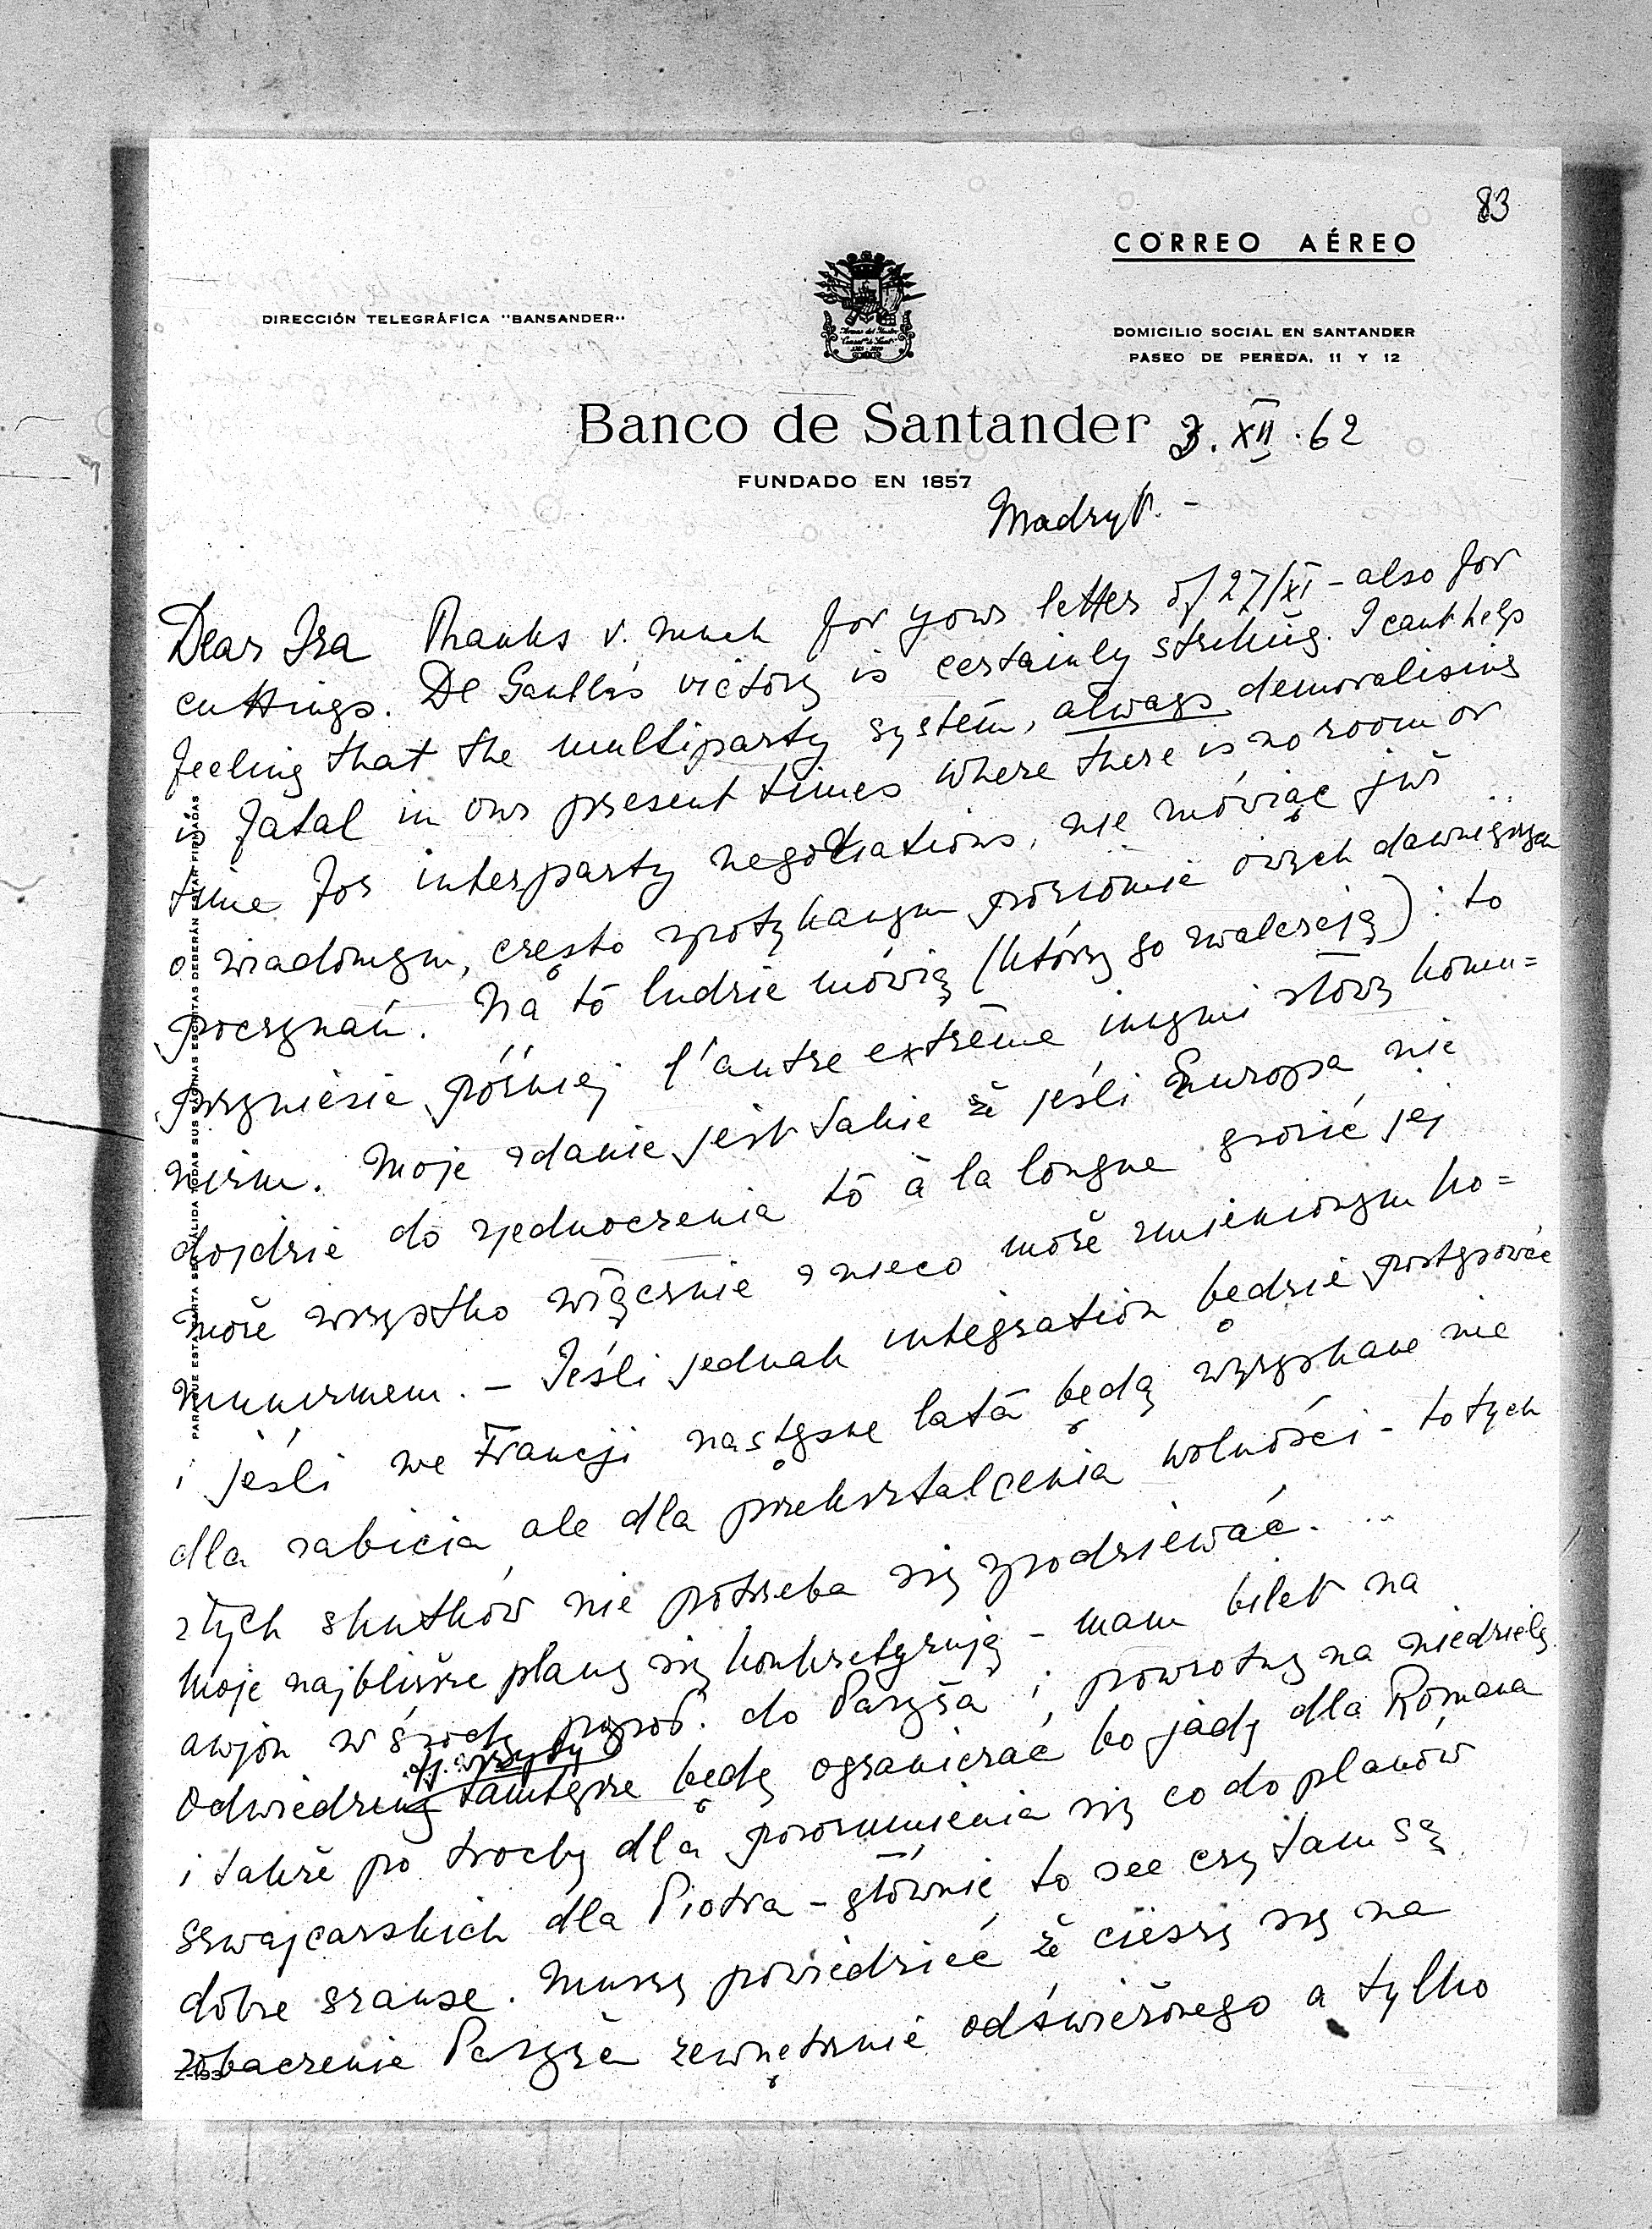 83
CORREO AÉREO
DIRECCIÓN TELEGRÁFICA "BANSANDER"
DOMICILIO SOCIAL EN SANTANDER
PASEO DE PEREDA, 11 Y 12
Banco de Santander 3. XII. 62
FUNDADO EN 1857
Madryt. -
Dear Ira Thanks v. much for your letter of 27/XI - also for
cuttings. De Gaulle's victory is certainly striking. I can't help
feeling that the multiparty system, always demoralising
is fatal in our present times where there is no room or
time for interparty negotiations, nie mówiąc już
o wiadomym, często spotykanym poziomie owych dawniejszych
poczynań. Na to ludzie mówią (którzy go zwalczają): to
przyniesie później l'autre extrême innymi słowy komu=
nizm. Moje zdanie jest takie że jeśli Europa nie
dojdzie do zjednoczenia to à la longue grozić jej
może wszystko włącznie z nieco może zmienionym ko=
munizmem. - Jeśli jednak integration będzie postępować
i jeśli we Francji następne lata będą wyzyskane nie
dla zabicia ale dla przekształcenia wolności - to tych
złych skutków nie potrzeba się spodziewać. ...
Moje najbliższe plany się konkretyzują - mam bilet na
awjon w środę przed. do Paryża i powrotny na niedzielę
tj. wizyty
Odwiedziny tamtejsze będę ograniczać bo jadę dla Romana
i także po trochę dla porozumienia się co do planów
szwajcarskich dla Piotra - głównie to see czy tam są
dobre szanse. Muszę powiedzieć że cieszę się na
zobaczenie Paryża zewnętrznie odświeżonego a tylko
Z-193
PARA QUE ESTA CARTA SEA VÁLIDA TODAS SUS PÁGINAS ESCRITAS DEBERÁN ESTAR FIRMADAS